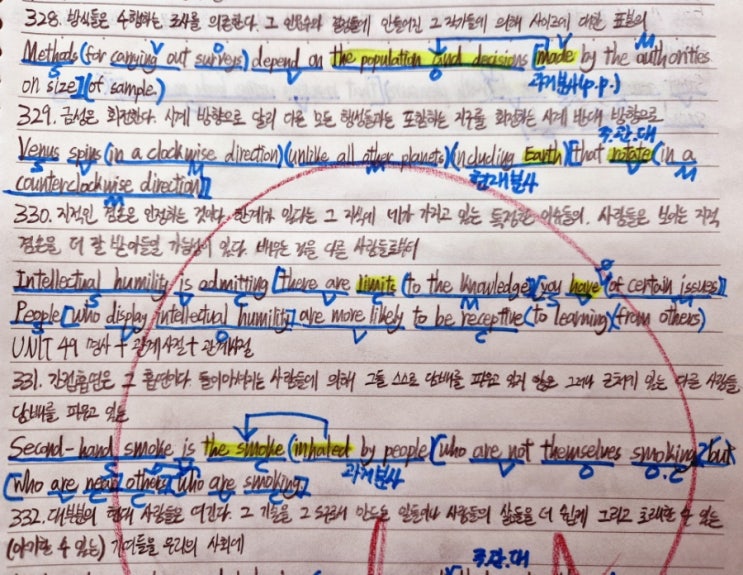 328. 방식들은 수행하는 조사를 의존한다. 그 인구수와 결정들에 만들어진 그 작가들에 의해 사이즈에 대한 표본의
Methods (for carrying out surveys) depend on the population and decisions [made by the authorities
on size] (of sample.)
과거분사(p.p.)
329. 금성은 회전한다. 시계 방향으로 달리 다른 모든 행성들과는 포함하는 지구를 회전하는 시계 반대 방향으로
주.관.대
Venus spins (in a clockwise direction) (unlike all other planets) (including Earth) [that rotate (in a
현재분사
counterclockwise direction)]
330. 지적인 겸손은 인정하는 것이다. 한계가 있다는 그 지식에 네가 가지고 있는 특정한 이슈들의. 사람들은 보이는 지적
겸손을 더 잘 받아들일 가능성이 있다. 배우는 것을 다른 사람들로부터
Intellectual humility is admitting [there are limits (to the knowledge) [you have (of certain issues)]]
People [who display intellectual humility] are more likely to be receptive (to learning) (from others)
UNIT 49 명사 + 관계사절 + 관계사절
331. 간접흡연은 그 흡연이다. 들이마셔지는 사람들에 의해 그들 스스로 담배를 피우고 있지 않은 그러나 근처에 있는 다른 사람들
담배를 피우고 있는
Second-hand smoke is the smoke (inhaled by people [who are not themselves smoking] but
과거분사
[who are near others [who are smoking.]
332. 대부분의 현대 사람들은 여긴다. 그 기술을 그 스스로 만드는 일들이나 사람들의 삶들을 더 쉽게 그리고 초래할 수 있는
(야기할 수 있는) 기여들을 우리의 사회에
주.관.대